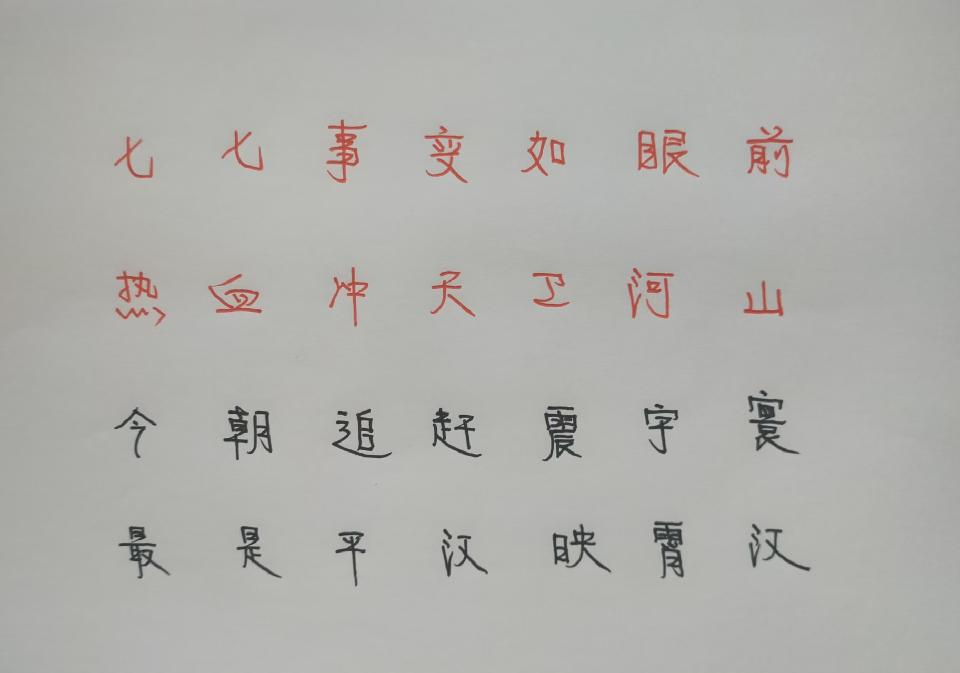 七七事变如眼前
热血冲天卫河山
今朝追赶震宇寰
最是平汉映霄汉